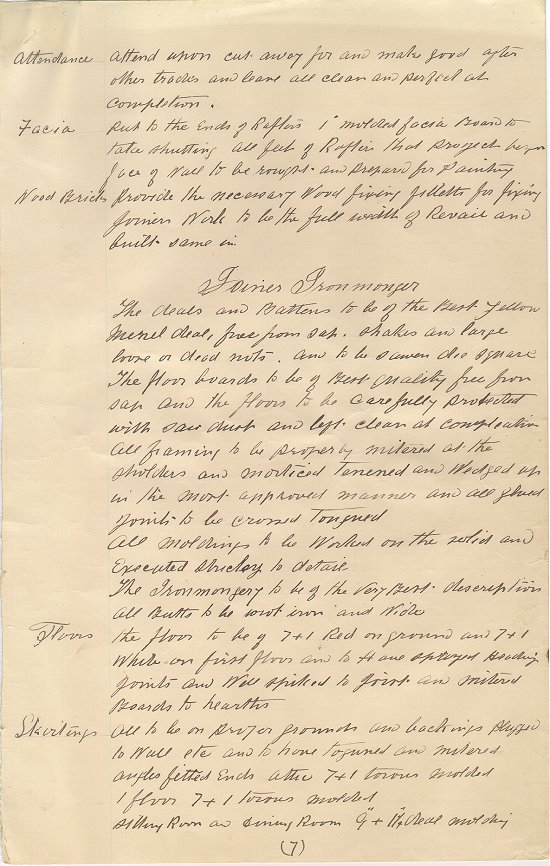 Attendance attend upon cut away for and make good after
other trades and leave all clean and perfect at
Completion.
Facia Put to the Ends of Rafters 1" molded facia Board to
take shutting all feet of Rafters that project beyon
face of Wall to be rought and Prepared for Painting
Wood Bricks Provide the necessary Wood fixing filletts for fixing
Joiners Work to be the full width of Reveir and
built same in
Joiner Ironmonger
The deals and Battens to be of the Best Yellow
Memel deal, free from sap. shakes an large
loose or dead nots. and to be sawen die square
The floor boards to be of Best quality free from
sap and the floors to be Carefully protected
with saw dust and left clean at completion
All framing to be properly mitered at the
sholders and morticed Tenened and Wedged up
in the most approved manner and all glued
joints to be crossed Tongued
All moldings to be Worked on the solid and
Executed strickly to detail
The Ironmongery to be of the Very Best description
all Butts to be wrot iron and Wide
Floors the floor to be of 7 + 1 Red on ground and 7 + 1
White on first floor and to H ave splayed Heading
joints and Well spiked to joist an mitered
Boards to hearths
Skirtings all to be on proper grounds and backings plugged
to Wall etc and to have togued and mitered
angles fitted Ends attic 7 + 1 torous molded
1 floor 7 + 1 torous molded
Sitting Room an Dining Room 9" + 1¼ deal molding
(7)